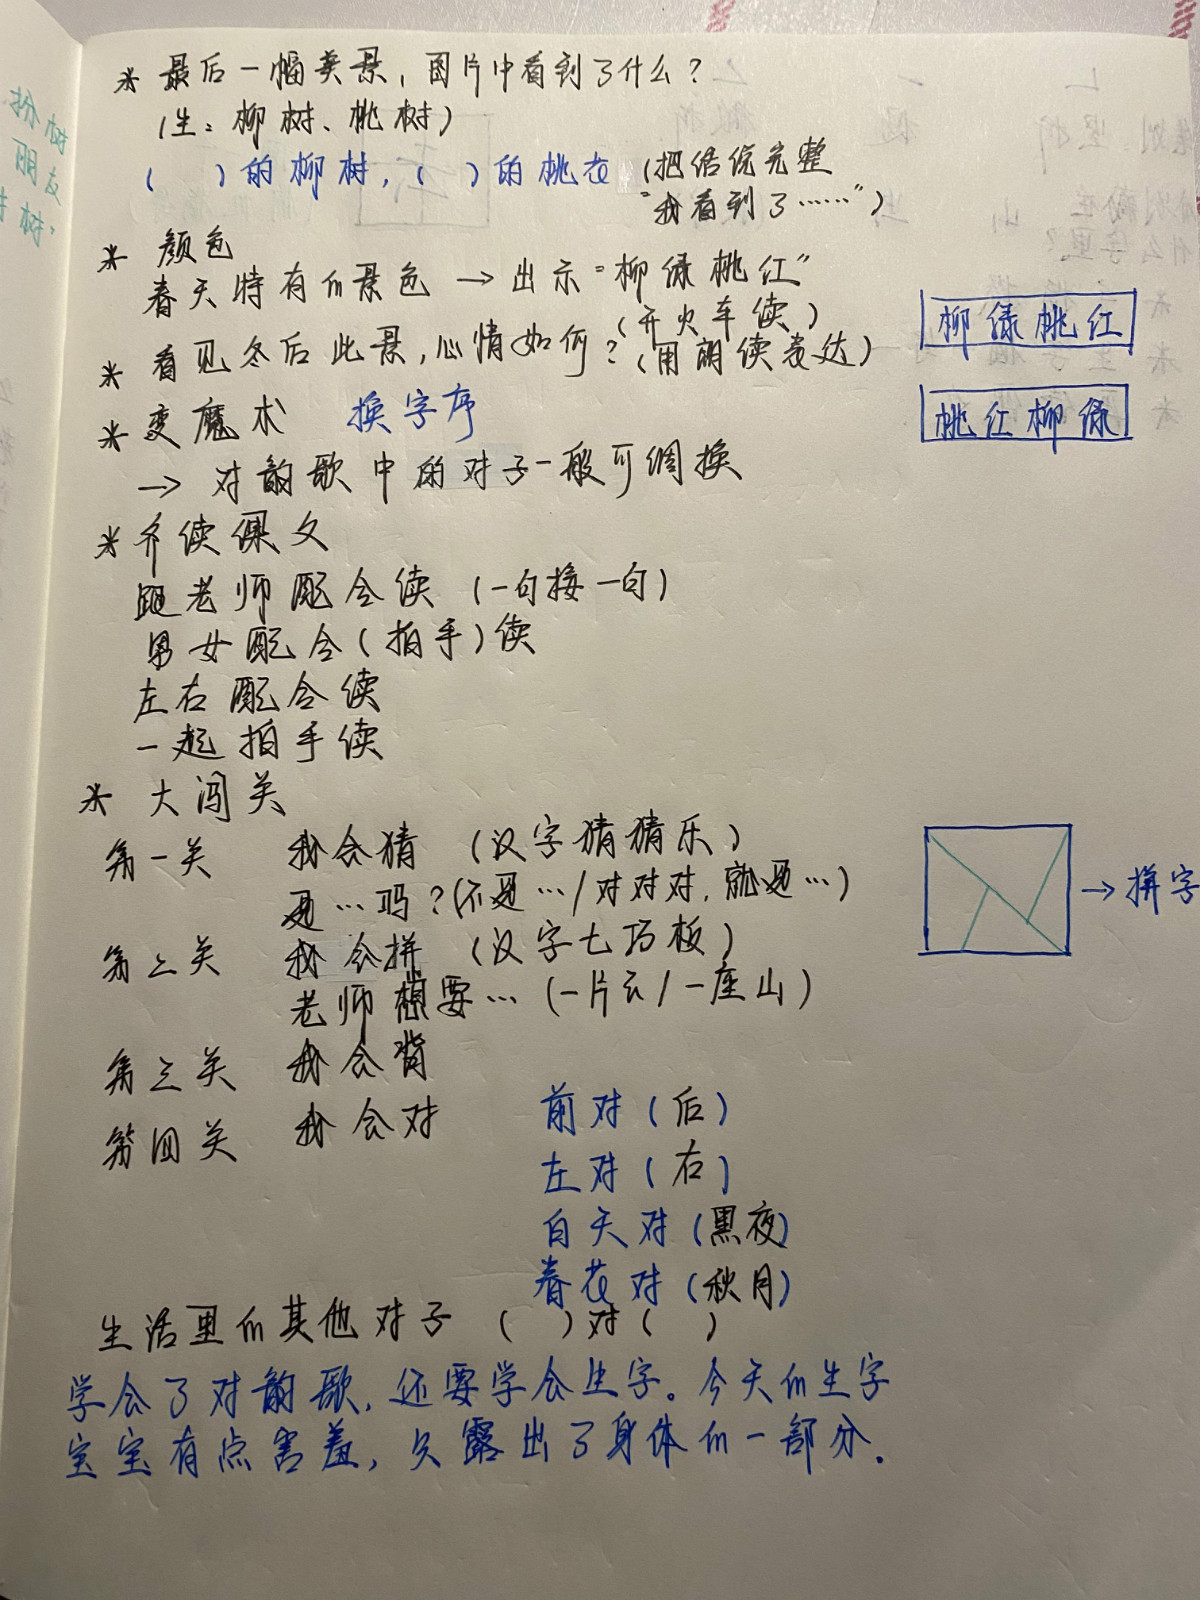 扮树
朋友
树.
* 最后一幅美景，图片中看到了什么？
（生：柳树、桃树）
（ ）的柳树，（ ）的桃花（把话说完整
“我看到了……”）
* 颜色
春天特有的景色 → 出示“柳绿桃红”
（开火车读）
* 看见冬后此景，心情如何？（用朗读表达）
柳绿桃红
* 变魔术 换字序
桃红柳绿
→ 对韵歌中的对子一般可调换
* 齐读课文
跟老师配合读（一句接一句）
男女配合（拍手）读
左右配合读
一起拍手读
* 大闯关
第一关 我会猜（汉字猜猜乐）
是…吗？（不是…/对对对，就是…）
第二关 我会拼（汉字七巧板）
→拼字
老师想要…（一片云/一座山）
第三关 我会背
第四关 我会对
前对（后）
左对（右）
白天对（黑夜）
春花对（秋月）
生活里的其他对子（ ）对（ ）
学会了对韵歌，还要学会生字。今天的生字
宝宝有点害羞，只露出了身体的一部分.